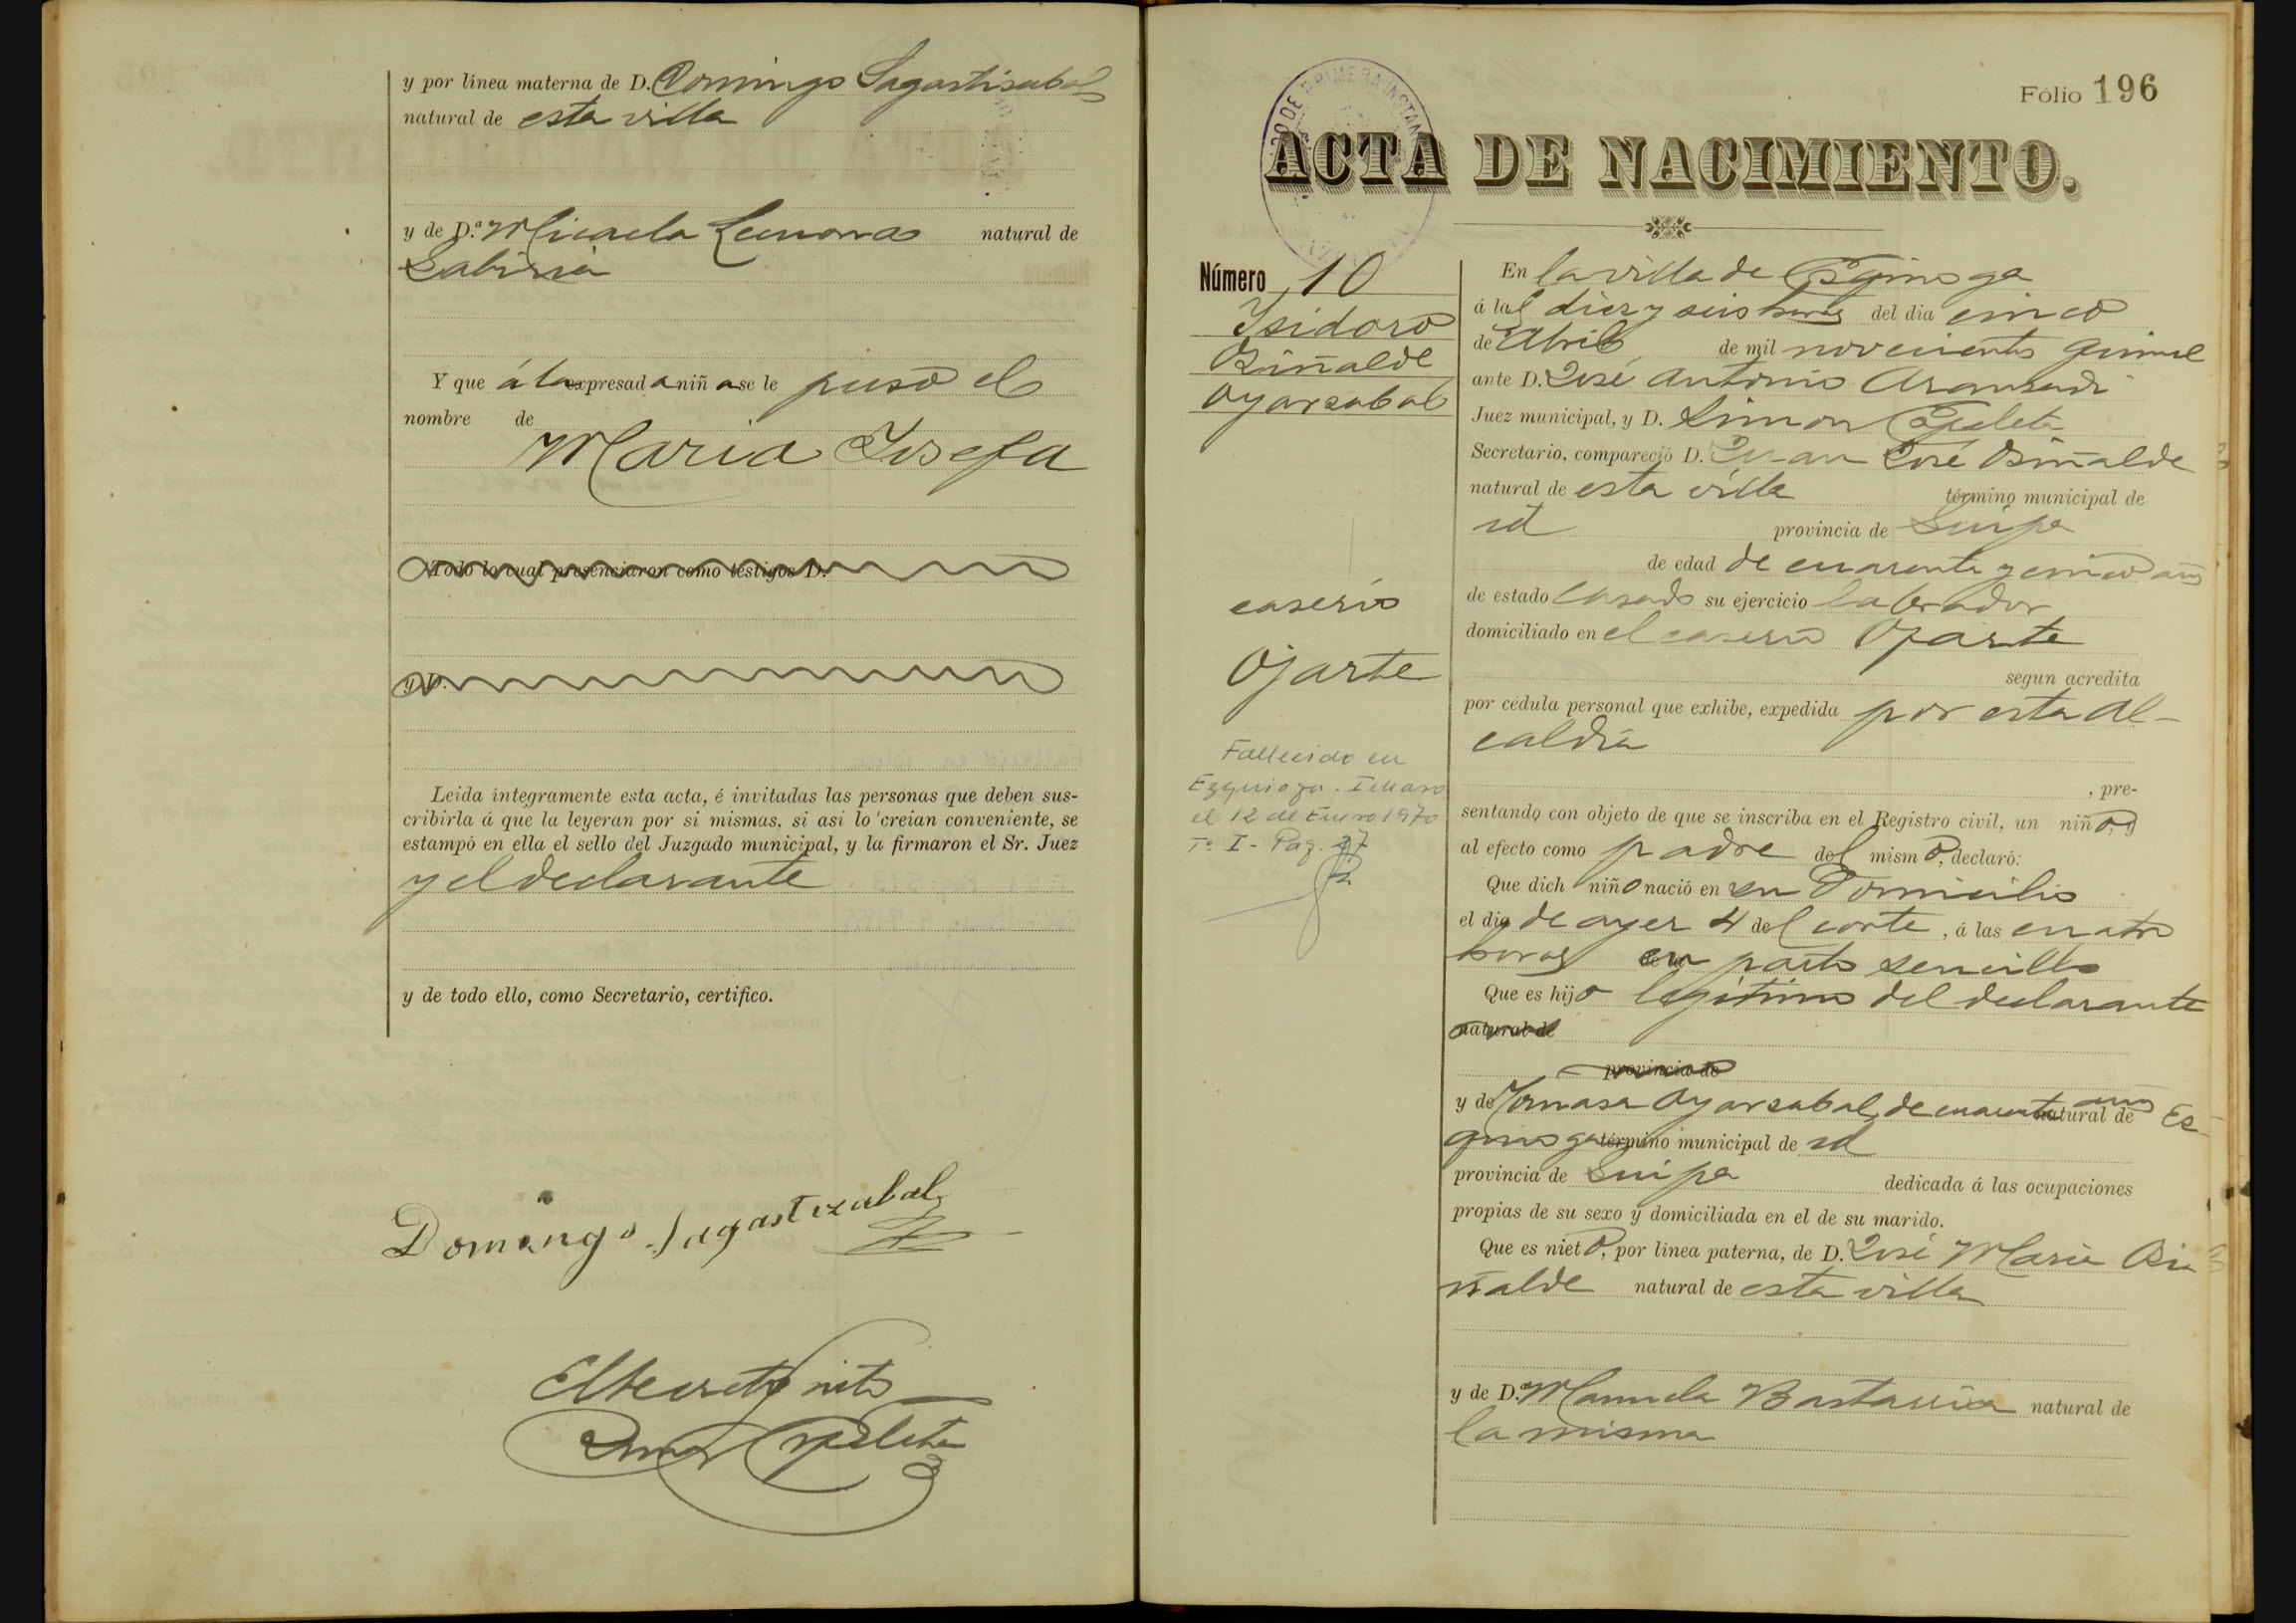 y por linea materna de D. Domingo Sagastisabal
natural de esta villa
y de D.ª Micaela natural de
Y que á la expresada niña se le puso el
nombre de
Maria Josefa
Todo lo cual presenciaron como testigos D.
y D.
Leida íntegramente esta acta, é invitadas las personas que deben sus-
cribirla á que la leyeran por sí mismas, si así lo creian conveniente, se
estampó en ella el sello del Juzgado municipal, y la firmaron el Sr. Juez
y el declarante
y de todo ello, como Secretario, certifico.
Domingo Sagastizabal
Fólio 196
ACTA DE NACIMIENTO.
Número 10
Isidoro
Osiñalde
Oyarsabal
caserio
Ojarte
Fallecido en
Ezquioga-Itsaso
el 12 de Enero 1970
Tº I - Pag. 27
En la villa de Esquioga
á las diez y seis horas del dia cinco
de Abril de mil novecientos quince
ante D. José Antonio Aramendi
Juez municipal, y D. Simon Epelde
Secretario, compareció D. Juan José Osiñalde
natural de esta villa término municipal de
id provincia de Guipa
de edad de cuarenta y cinco años
de estado casado su ejercicio labrador
domiciliado en el caserio Ojarte
segun acredita
por cédula personal que exhibe, expedida por esta Al-
caldía
, pre-
sentando con objeto de que se inscriba en el Registro civil, un niño, y
al efecto como padre del mismo, declaró:
Que dich niño nació en su Domicilio
el dia de ayer 4 del corte, á las cuatro
horas en parto sencillo
Que es hijo legítimo del declarante
natural de
provincia de
y de Tomasa Oyarsabal, de cuarenta años natural de Es-
quioga término municipal de id
provincia de Guipa dedicada á las ocupaciones
propias de su sexo y domiciliada en el de su marido.
Que es nieto, por línea paterna, de D. José Maria Osi
ñalde natural de esta villa
y de D.ª Manuela Bastarrica natural de
la misma